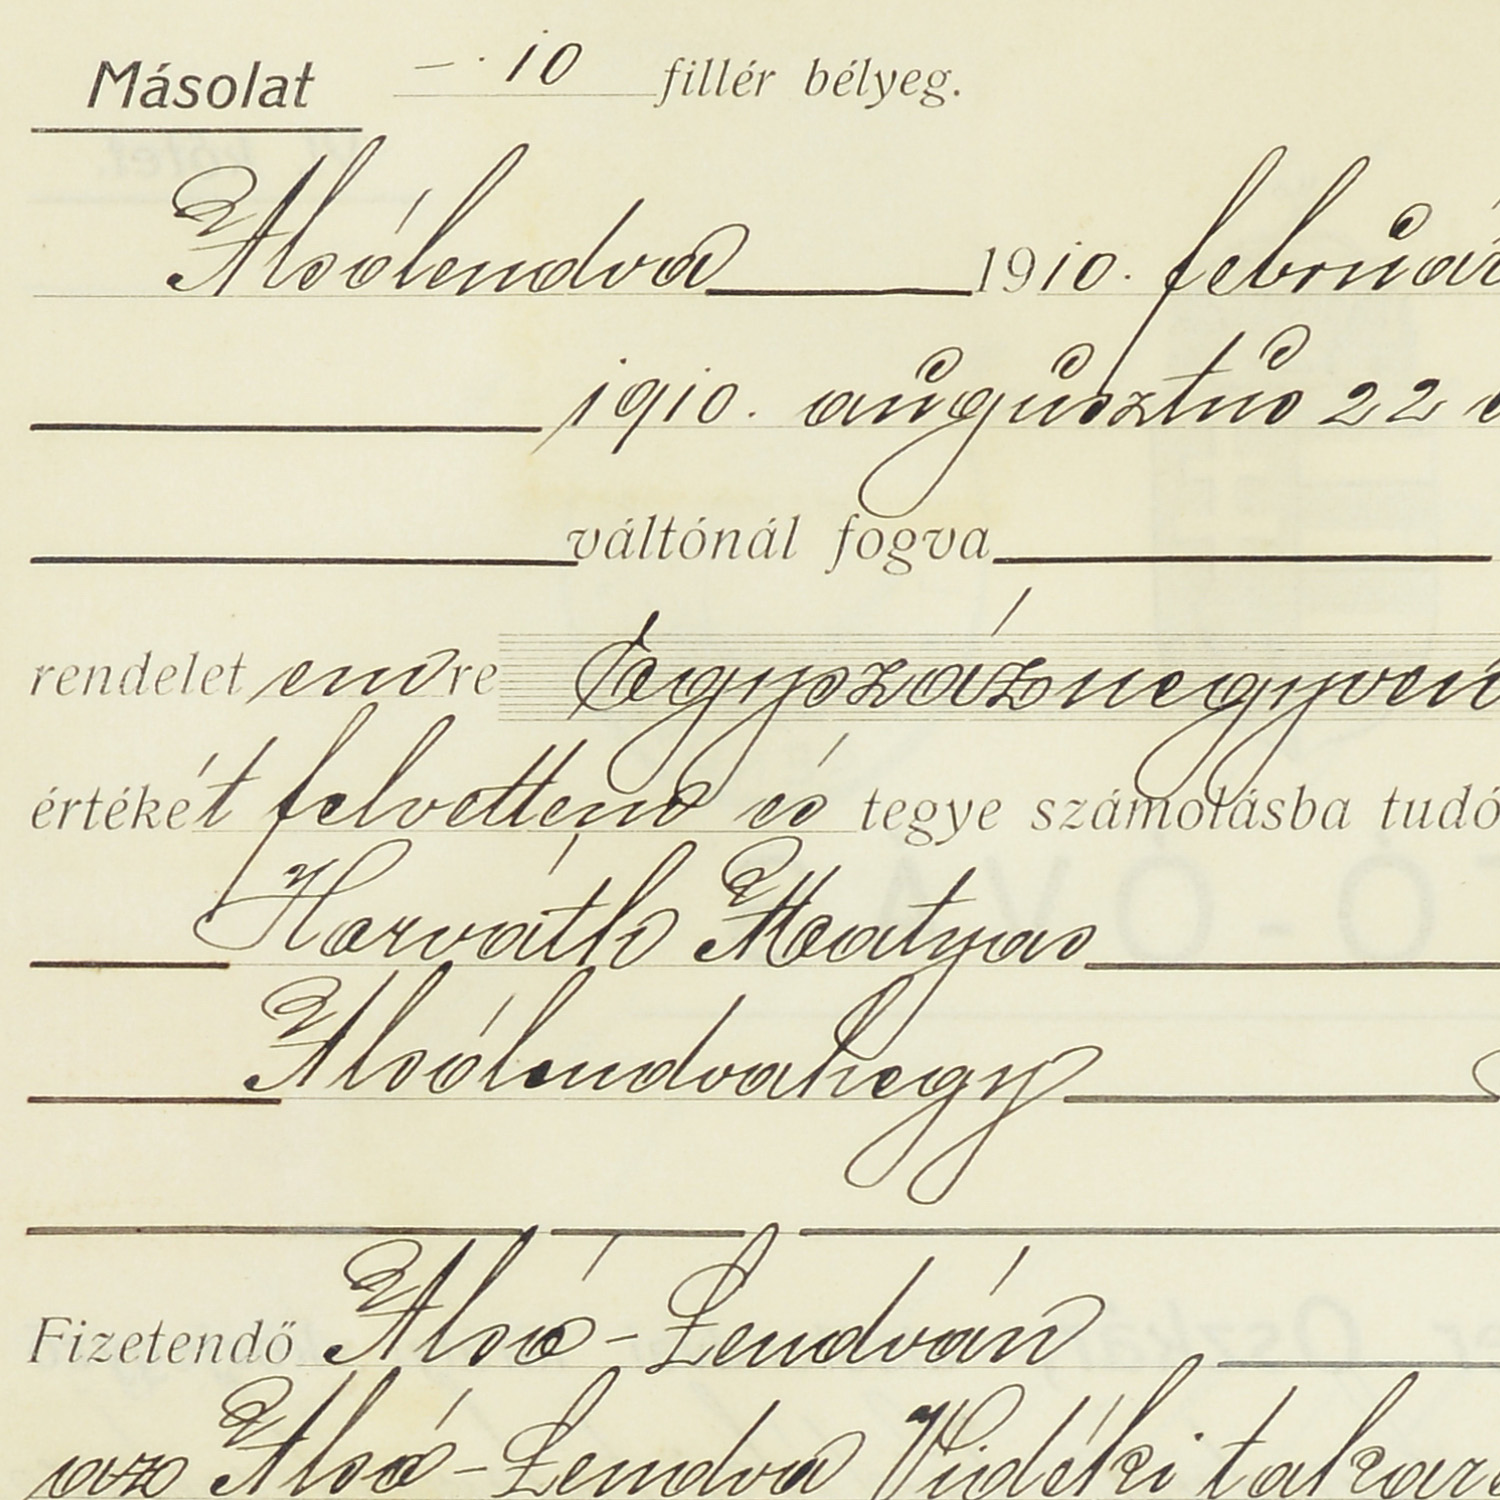 Másolat — 10 fillér bélyeg.
Alsólendva 1910. február
1910. augusztus 22
váltónál fogva
rendelet en re Egyszáznegyven
értékét felvettem és tegye számolásba tudó
Horváth Mátyas
Alsólendvahegy
Fizetendő Alsó-Lendván
az Alsó-Lendva Vidéki takaré